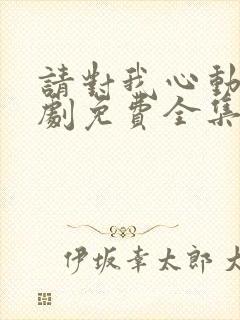 請對我心動
劇免費全集
伊坂幸太郎 大